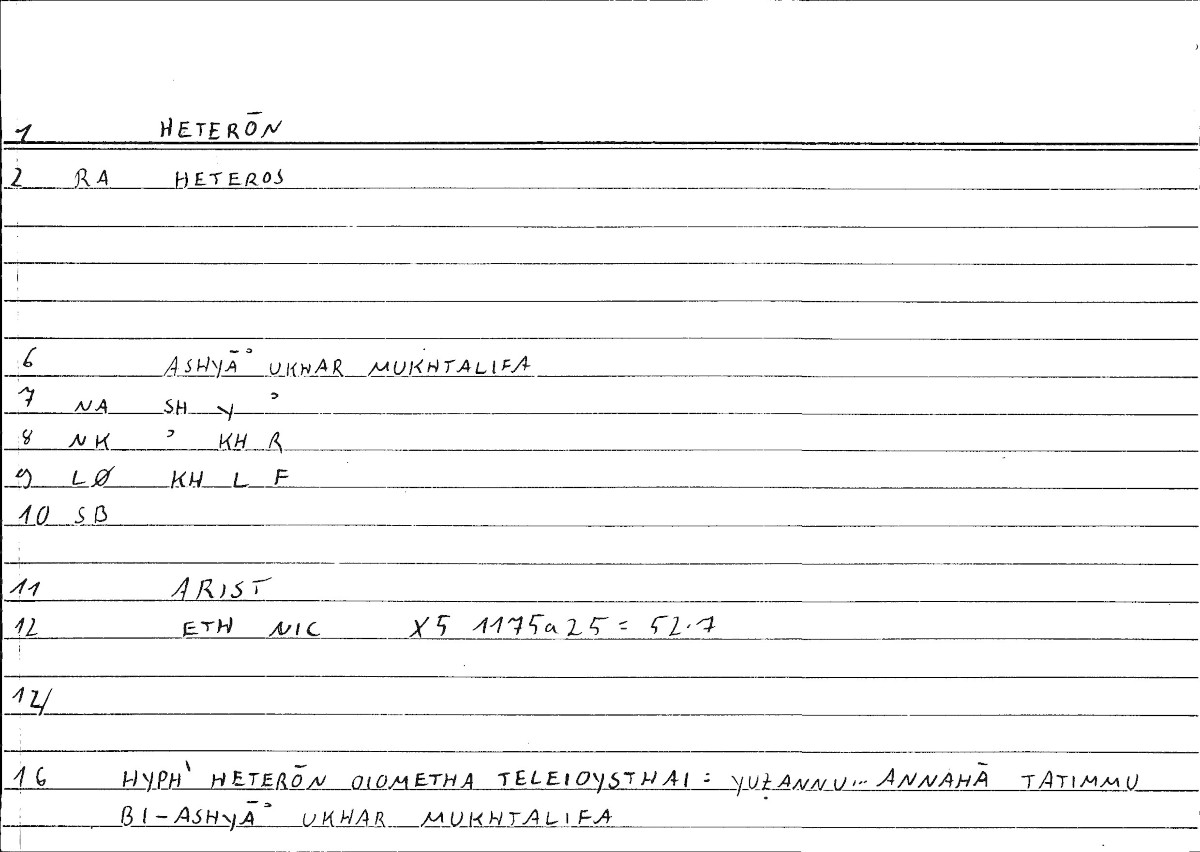 1 HETERŌN
2 RA HETEROS
6 ASHYĀʾ UKHAR MUKHTALIFA
7 NA SH Y ʾ
8 NK ʾ KH R
9 LØ KH L F
10 SB
11 ARIST
12 ETH NIC X5 1175a25 = 52.7
12/
16 HYPH' HETERŌN OIOMETHA TELEIOYSTHAI = YUẒANNU... ANNAHĀ TATIMMU
BI-ASHYĀʾ UKHAR MUKHTALIFA